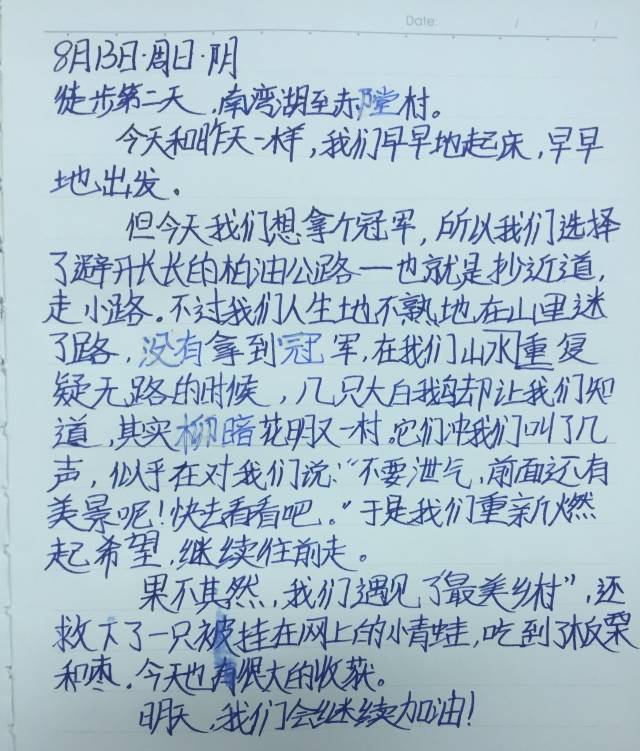 Date: / /
8月13日·周日·阴
徒步第二天,南湾湖至赤膛村。
今天和昨天一样,我们早早地起床,早早
地出发。
但今天我们想拿个冠军,所以我们选择
了避开长长的柏油公路—也就是抄近道,
走小路。不过我们人生地不熟地在山里迷
了路,没有拿到冠军,在我们山水重复
疑无路的时候,几只大白鹅却让我们知
道,其实柳暗花明又一村。它们冲我们叫了几
声,似乎在对我们说:“不要泄气,前面还有
美景呢!快去看看吧。”于是我们重新燃
起希望,继续往前走。
果不其然,我们遇见了“最美乡村”,还
救下了一只被挂在网上的小青蛙,吃到了板栗
和枣,今天也有很大的收获。
明天,我们会继续加油!